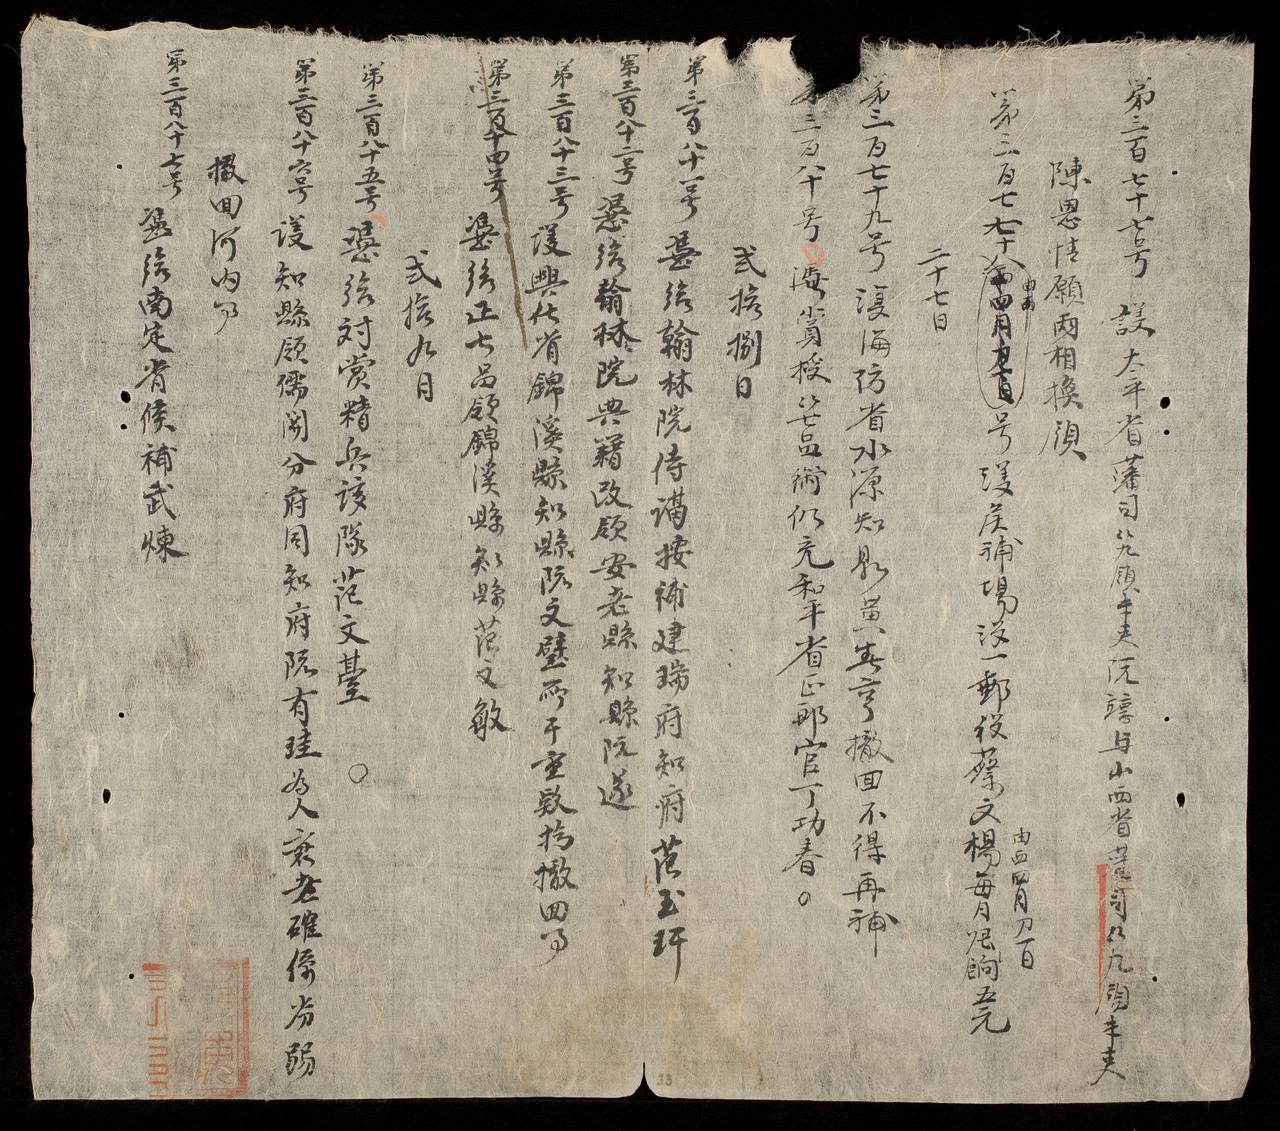 第三百七十七号 議太平省藩司八九領未吏阮諄与山西省藩司八九領未吏
陳恩情願兩相換領
第三百七十八号 議侯補場没一郵役蔡文楊每月俸餉五元
由西四月初一日
二十七日
第三百七十九号 議海防省水源知縣黄春亨撤回不得再補
第三百八十号 賞授 仍充和平省正郎官丁功春
弍拾捌日
第三百八十一号 憑給翰林院侍講按補建瑞府知府范玉玕
第三百八十二号 憑給翰林院典籍改領安老縣知縣阮遂
第三百八十三号 議興化省錦溪縣知縣阮文璧所干重欵撤回
第三百八十四号 憑給正七品領錦溪縣知縣范文敏
弍拾九日
第三百八十五号 憑給対賞精兵該隊范文臺
第三百八十六号 議知縣領儒関分府同知府阮有珪為人衰老確係劣弱
撤回河内
第三百八十七号 憑給南定省候補武煉
33